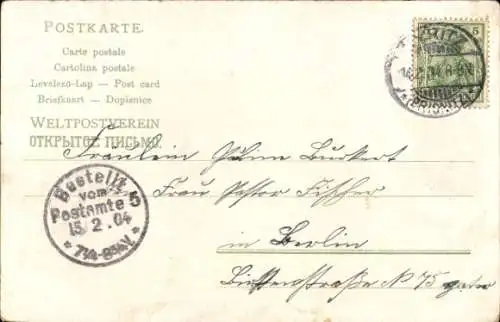 POSTKARTE.
Carte postale
Cartolina postale
Levelező-Lap — Post card
Briefkaart — Dopisnice
WELTPOSTVEREIN
ОТКРЫТОЕ ПИСЬМО.
5
(PRIGNITZ)
Bestellt
vom
Postamte 5
15 2.04
7¼-8¼V.
Fräulein Burkert
Frau Pastor Fischer
in Berlin
N 75